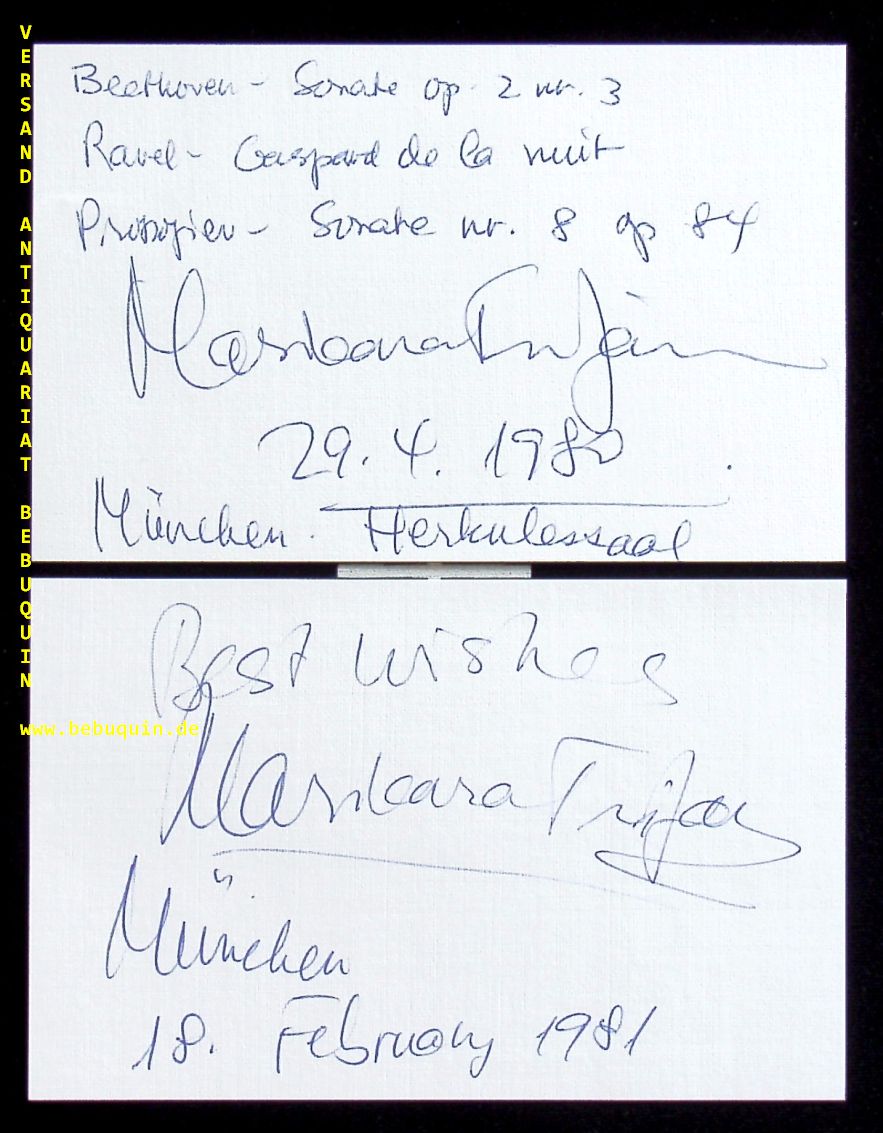 Beethoven - Sonate op. 2 nr. 3
Ravel - Gaspard de la nuit
Prokofiev - Sonate nr. 8 op 84
29. 4. 1980
München. Herkulessaal
Best wishes
München
18. February 1981
VERSAND ANTIQUARIAT BEBUQUIN
www.bebuquin.de